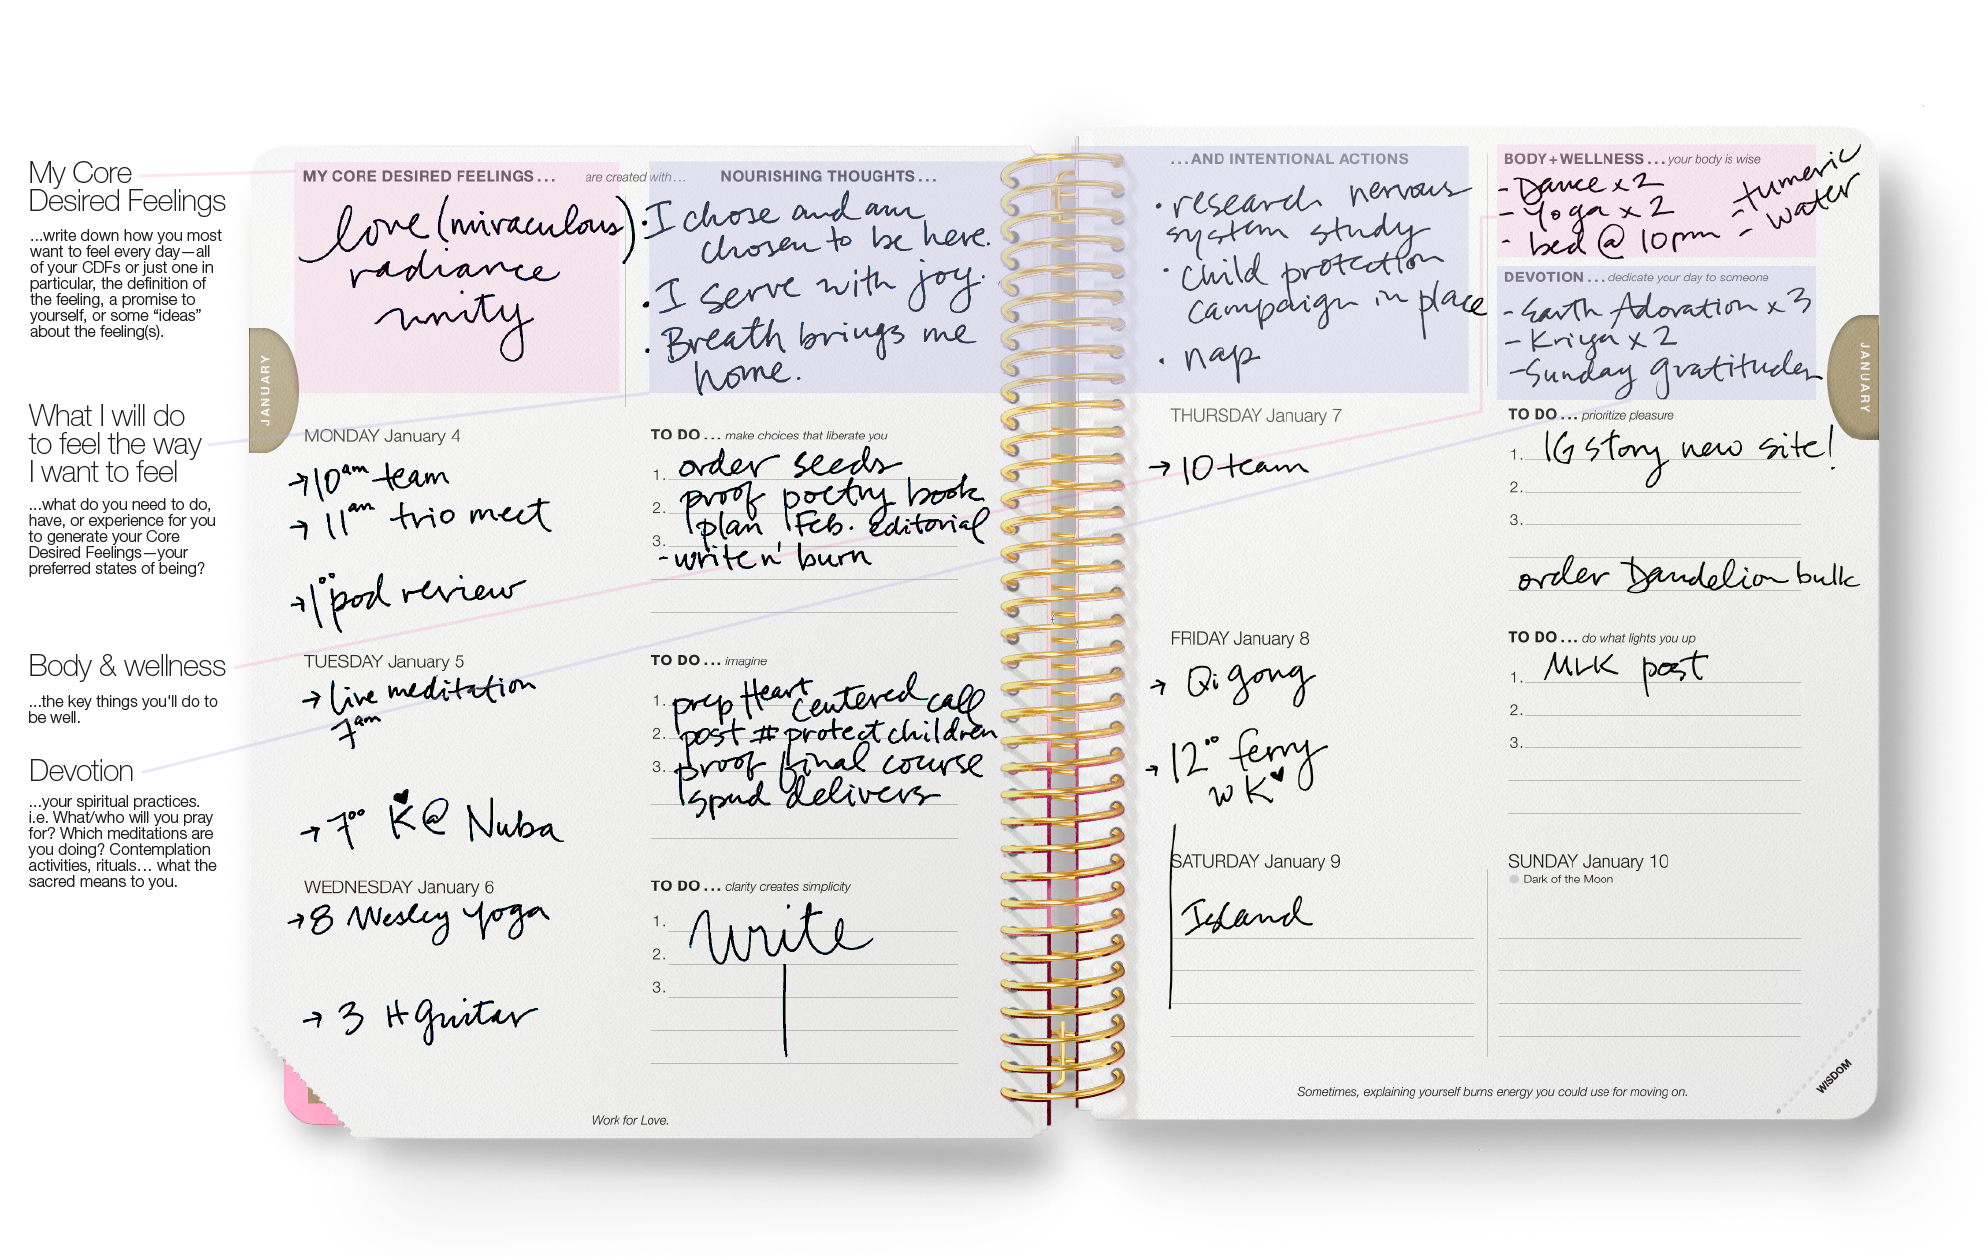 My Core
Desired Feelings
...write down how you most
want to feel every day—all
of your CDFs or just one in
particular, the definition of
the feeling, a promise to
yourself, or some “ideas”
about the feeling(s).
What I will do
to feel the way
I want to feel
...what do you need to do,
have, or experience for you
to generate your Core
Desired Feelings—your
preferred states of being?
Body & wellness
...the key things you'll do to
be well.
Devotion
...your spiritual practices.
i.e. What/who will you pray
for? Which meditations are
you doing? Contemplation
activities, rituals... what the
sacred means to you.
JANUARY
MY CORE DESIRED FEELINGS...
are created with...
love (miraculous)
radiance
unity
NOURISHING THOUGHTS...
• I chose and am
chosen to be here.
• I serve with joy.
• Breath brings me
home.
MONDAY January 4
→ 10am team
→ 11am trio meet
→ 1°° pod review
TO DO... make choices that liberate you
1. order seeds
2. proof poetry book
plan Feb. editorial
3.
- write n' burn
TUESDAY January 5
→ live meditation
7am
→ 7°° K @ Nuba
TO DO... imagine
1. prep Heart centered call
2. post #protectchildren
3. proof final course
spud delivers
WEDNESDAY January 6
→ 8 Wesley yoga
→ 3 H guitar
TO DO... clarity creates simplicity
1. Write
2.
3.
Work for Love.
...AND INTENTIONAL ACTIONS
• research nervous
system study
• child protection
campaign in place
• nap
BODY+WELLNESS... your body is wise
- Dance x 2
- Yoga x 2
- bed @ 10pm
- tumeric
- water
DEVOTION... dedicate your day to someone
- Earth Adoration x 3
- Kriya x 2
- Sunday gratitudes
JANUARY
THURSDAY January 7
→ 10 team
TO DO... prioritize pleasure
1. IG story new site!
2.
3.
order Dandelion bulk
FRIDAY January 8
→ Qi gong
→ 12°° ferry
w K♥
TO DO... do what lights you up
1. MLK post
2.
3.
SATURDAY January 9
Island
SUNDAY January 10
Dark of the Moon
Sometimes, explaining yourself burns energy you could use for moving on.
WISDOM